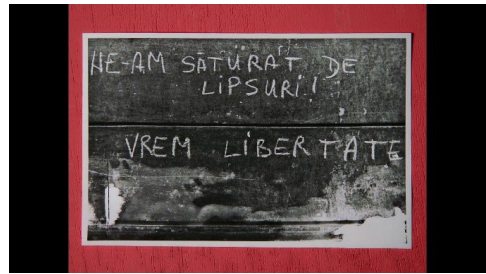 NE-AM SĂTURAT DE
LIPSURI!
VREM LIBERTATE